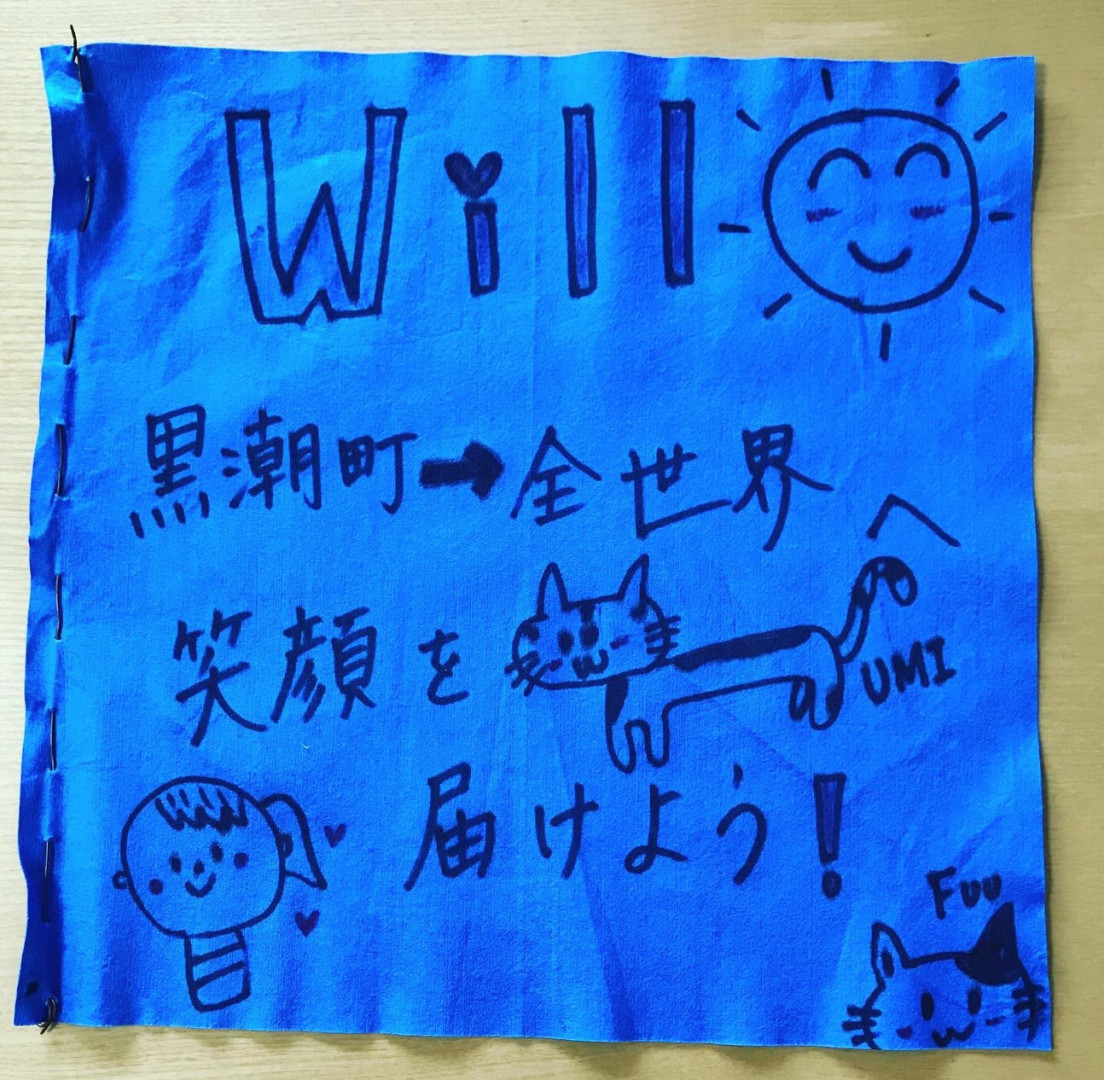 Will
黒潮町→全世界へ
笑顔を
UMI
届けよう!
Fuu